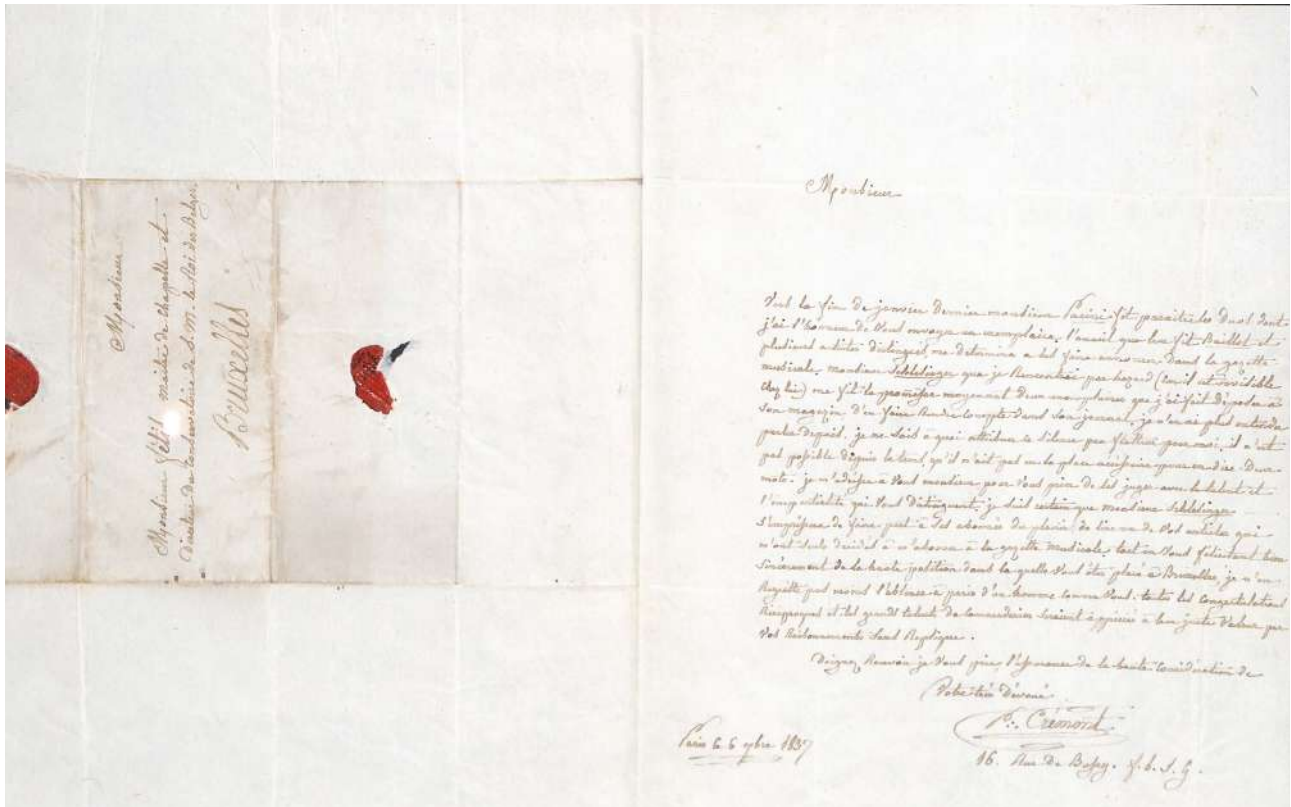 Monsieur
Monsieur fétis maitre de chapelle et
Directeur du Conservatoire de S. M. le Roi des Belges.
Bruxelles
Monsieur
Vers la fin de janvier Dernier monsieur Pacini fit paraitre les Duos dont
j'ai l'honneur de Vous envoyer un exemplaire. l'accueil que leur fit Baillot et
plusieurs artistes distingués, me détermina a les faire annoncer dans la gazette
musicale, monsieur Schlesinger que je Rencontrai par hazard (car il est invisible
chez lui) me fit la promesse moyennant Deux exemplaires que j'ai fait déposer à
Son magazin, D'en faire Rendre Compte dans Son journal, je n'en ai plus entendu
parler depuis, je ne Sais a quoi attribuer ce Silence peu flatteur pour moi, il n'est
pas possible depuis le tems, qu'il n'ait pas eu la place nécessaire pour en dire Deux
mots. je m'adresse à Vous monsieur pour Vous prier de les juger avec le talent et
l'impartialité qui Vous Distinguent, je suis certain que monsieur Schlesinger
S'empressera de faire part à Ses abonnés du plaisir de lire un de Vos articles qui
m'ont Seuls décidés à m'abonner à la gazette musicale, tout en Vous félicitant bien
Sincèrement de la haute position dans la quelle Vous êtes placé à Bruxelles, je n'en
Regrette pas moins l'absence à paris d'un homme comme Vous. toutes les
Réciproques et les grands talents de seraient appréciés a leur juste Valeur par
Vos Raisonnements Sans Replique.
Daignez Recevoir je Vous prie, l'assurance de la haute Considération de
Votre très Dévoué
P. Crémont
Paris le 6 9bre 1837
16. Rue De Bussy. f. b. S. G.